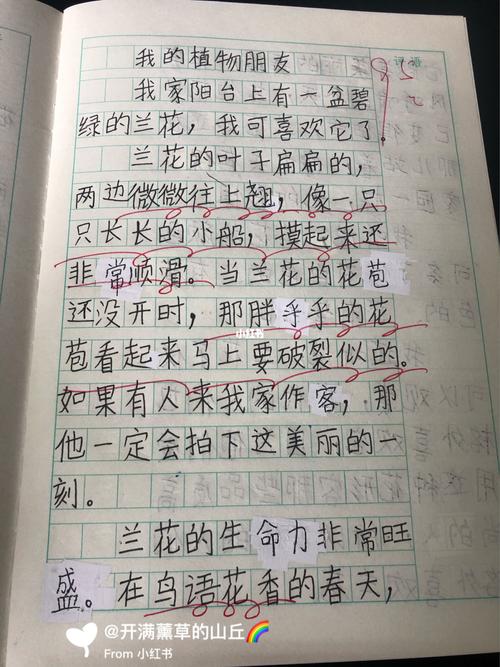 我的植物朋友
评语
95
我家阳台上有一盆碧
绿的兰花，我可喜欢它了。
兰花的叶子扁扁的，
两边微微往上翘，像一只
只长长的小船，摸起来还
非常顺滑。当兰花的花苞
还没开时，那胖乎乎的花
小红书
苞看起来马上要破裂似的。
如果有人来我家作客，那
他一定会拍下这美丽的一
刻。
兰花的生命力非常旺
盛。在鸟语花香的春天，
@开满薰草的山丘🌈
From 小红书